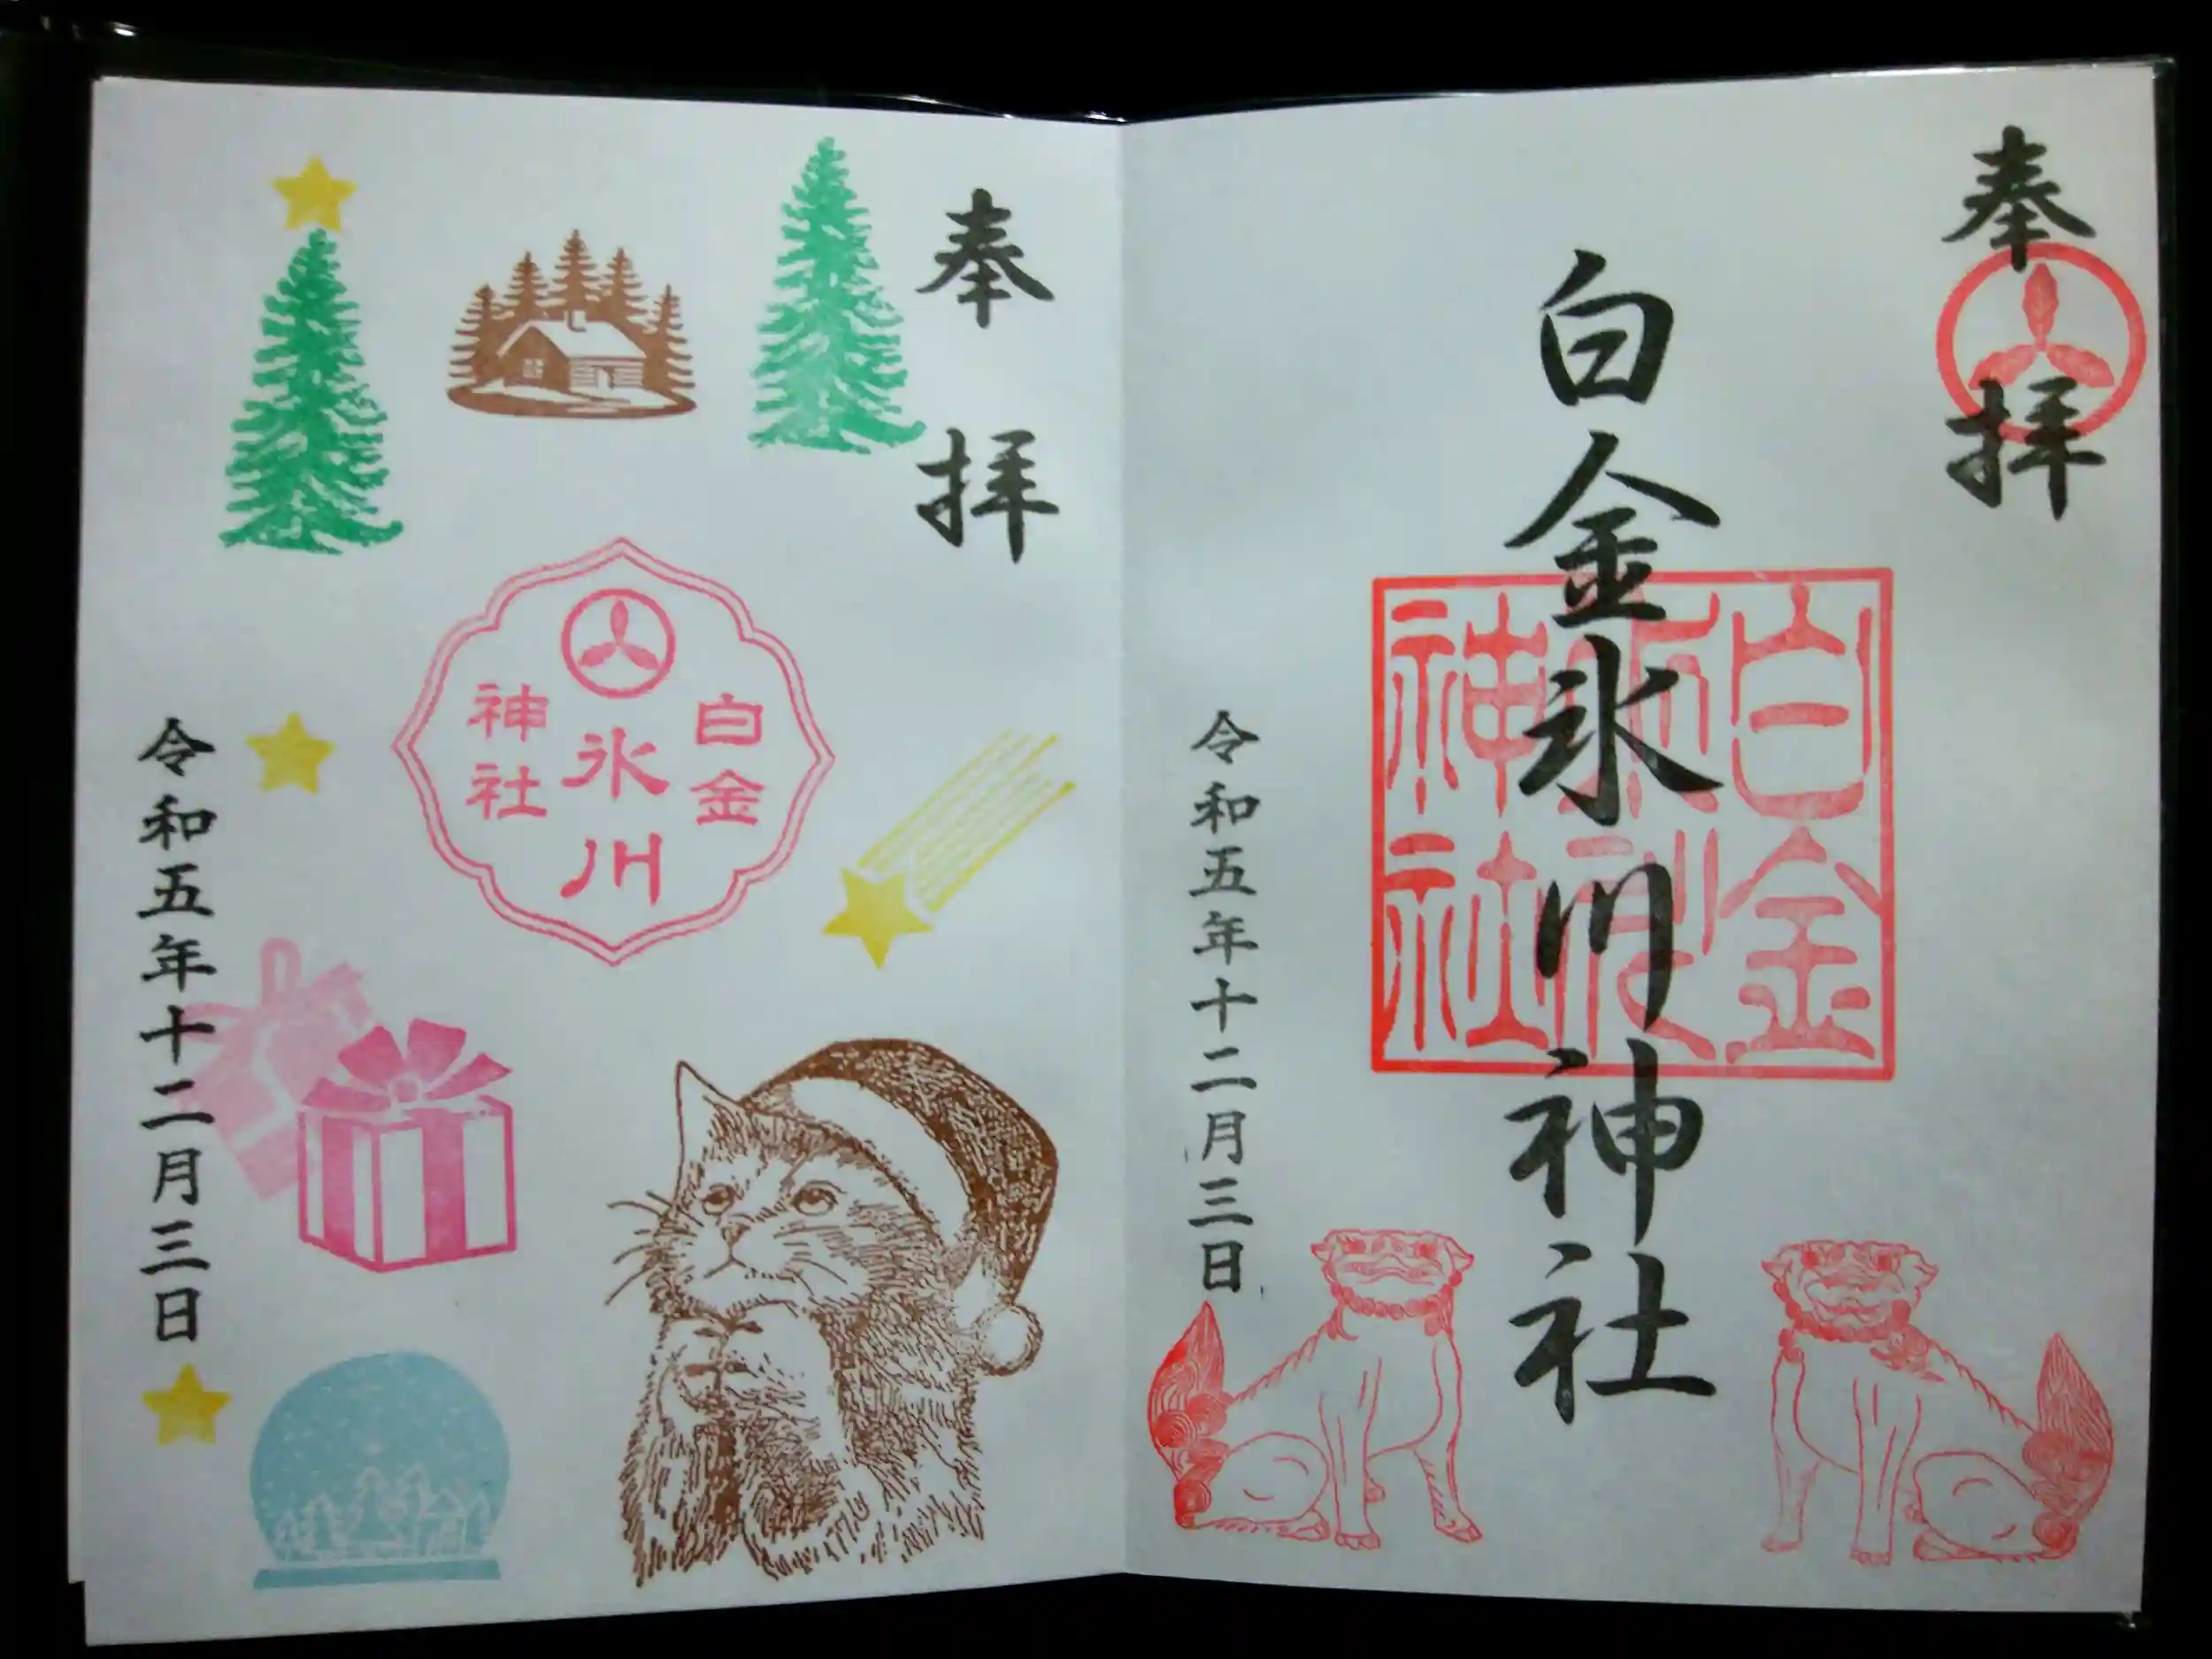 奉拝
白金氷川神社
白金
氷川
神社
令和五年十二月三日
奉拝
白金
氷川
神社
令和五年十二月三日